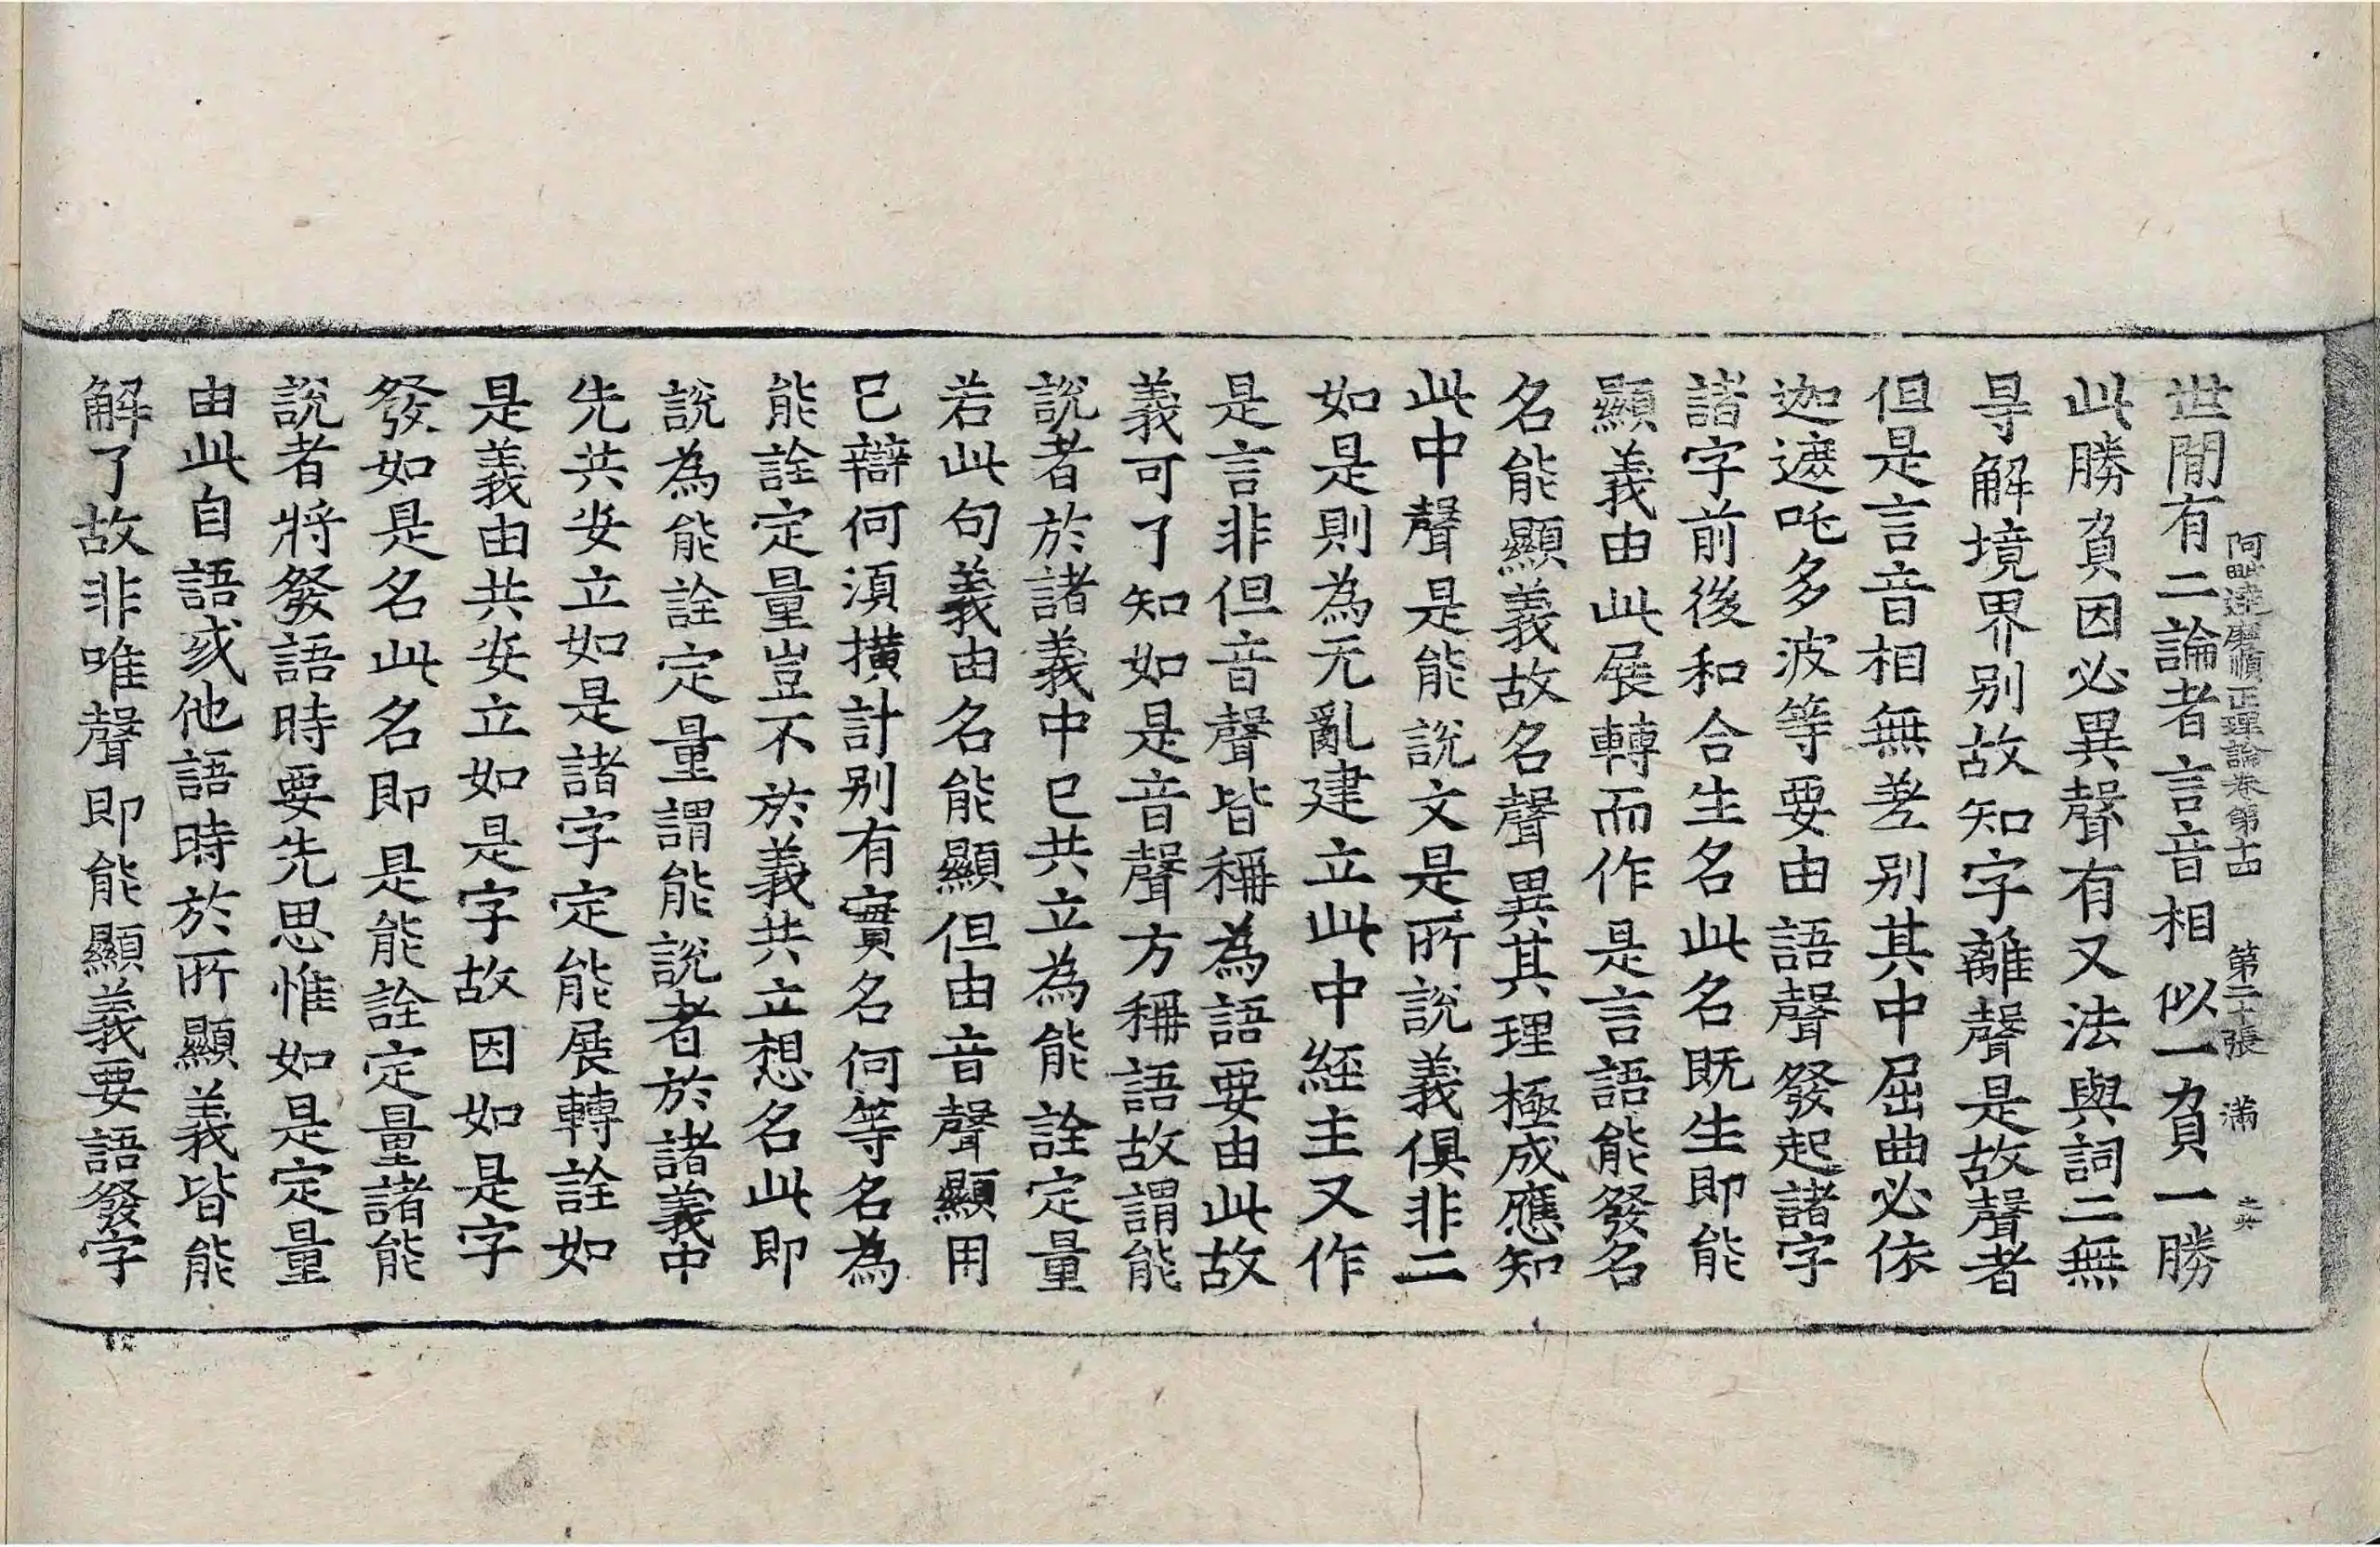 阿毗達磨順正理論卷第十四 第二十張 滿
世間有二論者言音相似一負一勝
此勝負因必異聲有又法與詞二無
㝵解境界別故知字離聲是故聲者
但是言音相無差別其中屈曲必依
迦遮吒多波等要由語聲發起諸字
諸字前後和合生名此名既生即能
顯義由此展轉而作是言語能發名
名能顯義故名聲異其理極成應知
此中聲是能說文是所說義俱非二
如是則為无亂建立此中經主又作
是言非但音聲皆稱為語要由此故
義可了知如是音聲方稱語故謂能
說者於諸義中已共立為能詮定量
若此句義由名能顯但由音聲顯用
已辯何須撗計別有實名何等名為
能詮定量豈不於義共立想名此即
說為能詮定量謂能說者於諸義中
先共安立如是諸字定能展轉詮如
是義由共安立如是字故因如是字
發如是名此名即是能詮定量諸能
說者將發語時要先思惟如是定量
由此自語或他語時於所顯義皆能
解了故非唯聲即能顯義要語發字